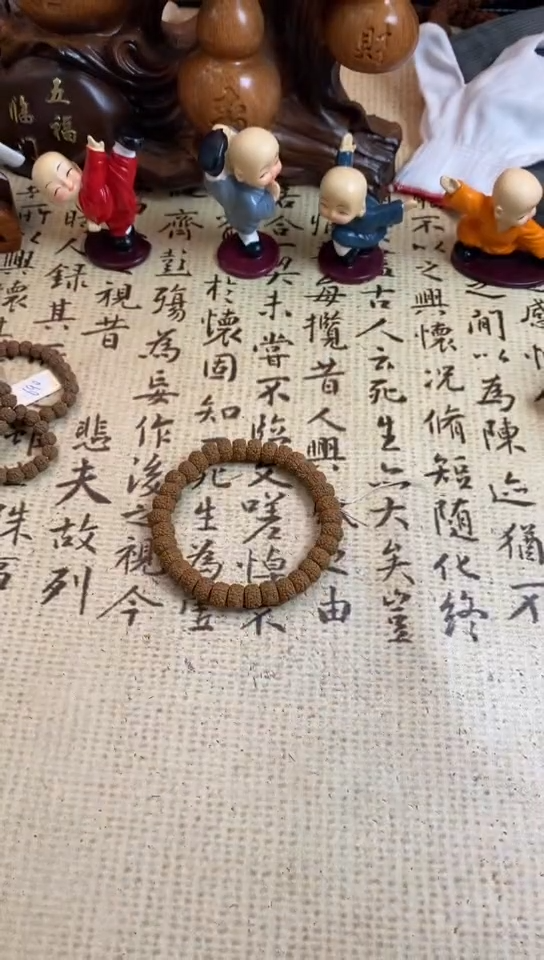 財
五福
臨
之間以為陳迹猶不
不以之興懷況脩短隨化終
古人云死生亦大矣豈
每攬昔人興之由
合一契未嘗不臨文嗟悼不
於懷固知死生為虛
齊彭殤為妄作後之視今
視昔悲夫故列
時人録其
興懷